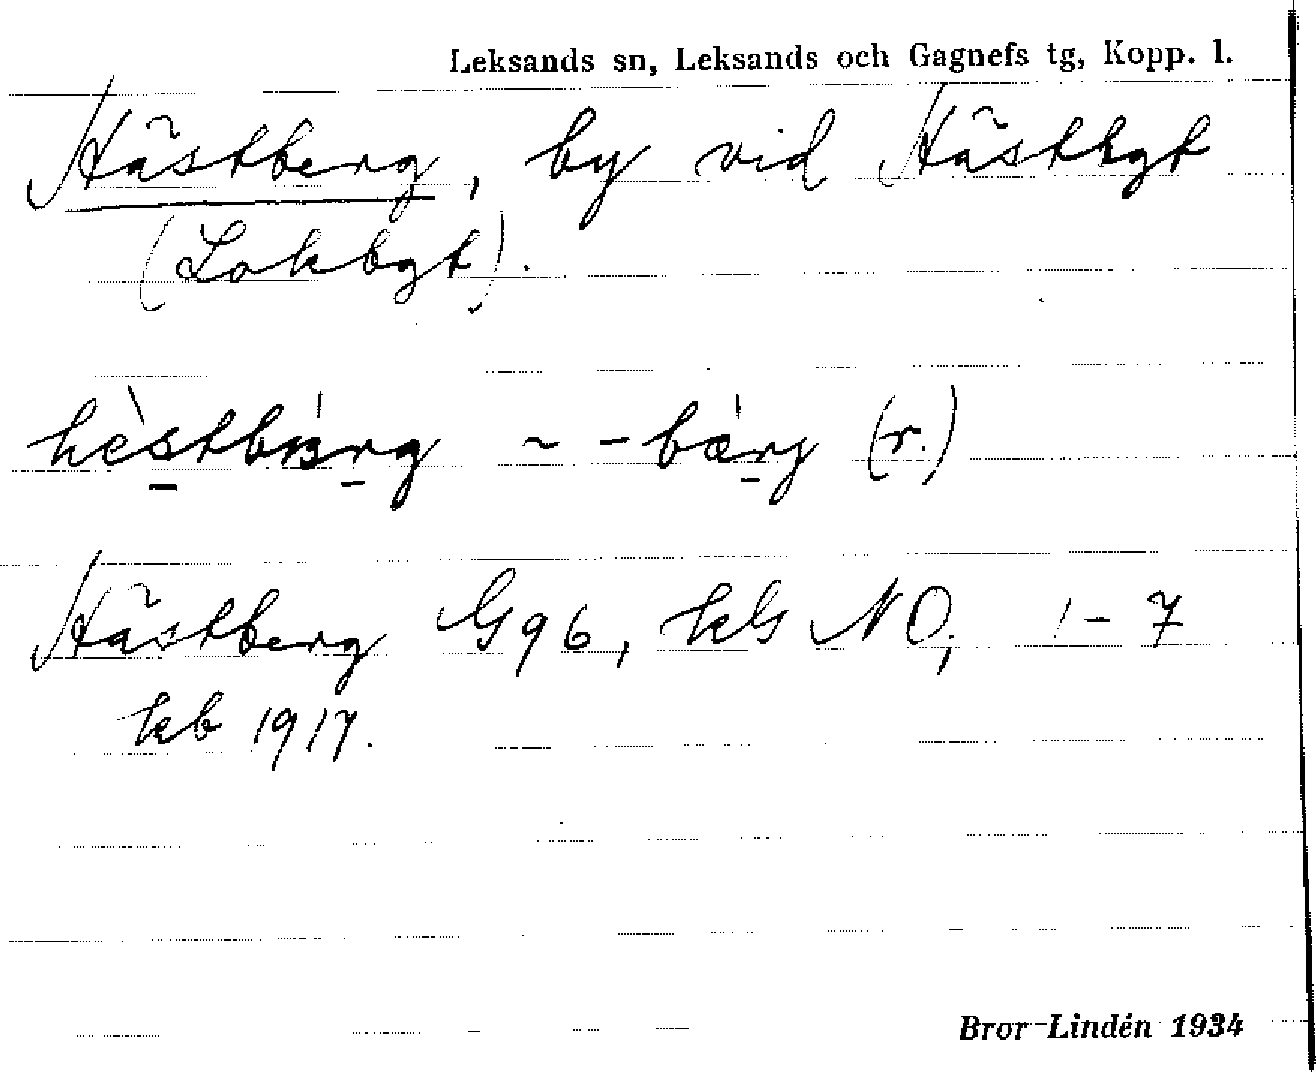 Leksands sn, Leksands och Gagnefs tg, Kopp. l.
Hästberg, by vid Hästbgt
(Lokbgt).
hèstbærg ~ -bærg (r.)
Hästberg G96, kbl NO, 1-7
kb 1917.
Bror Lindén 1934